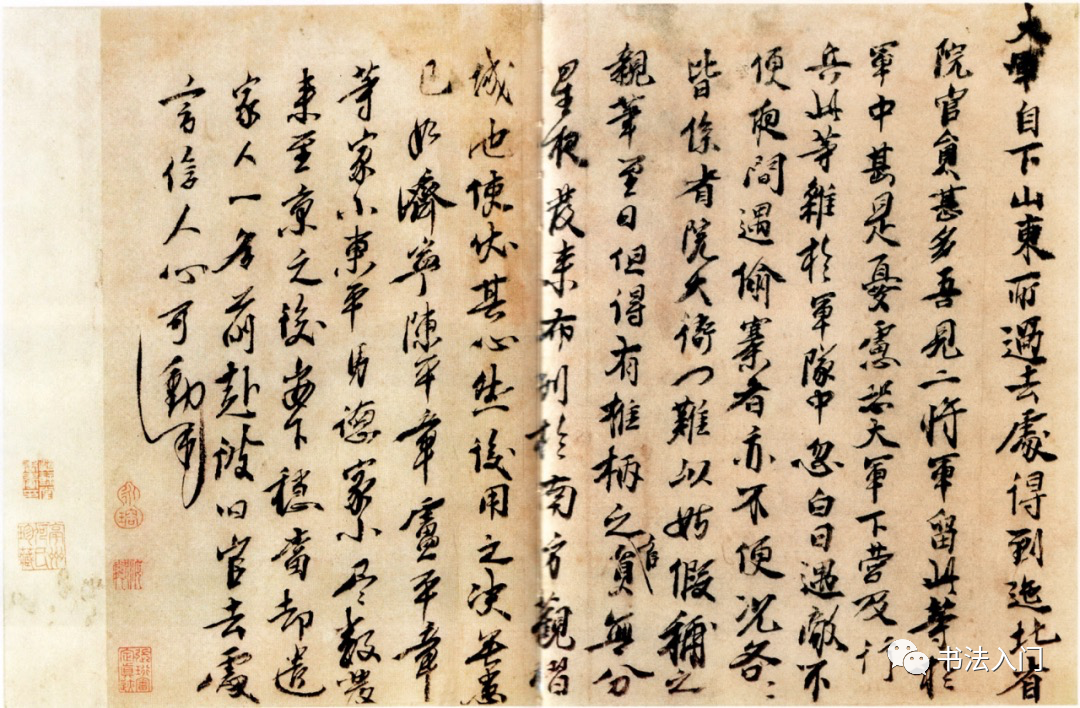 大軍自下山東所過去處得到迤北省
院官員甚多吾見二將軍留此等於
軍中甚是憂慮恐大軍下營及行
兵此等雜於軍隊中忽白日遇敵不
便夜間遇偷寨者亦不便況各々
皆係省院大衙門難以姑假補之
親筆至日但得有權柄之官員無分
星夜發來布列於南方觀習
城池使伏其心然後用之決無患
已如濟寧陳平章盧平章
等家小東平馬德家小尽數發
來至京之後安下穩當却遣
家人一名前赴彼旧官去處
言信人心可動
书法入门